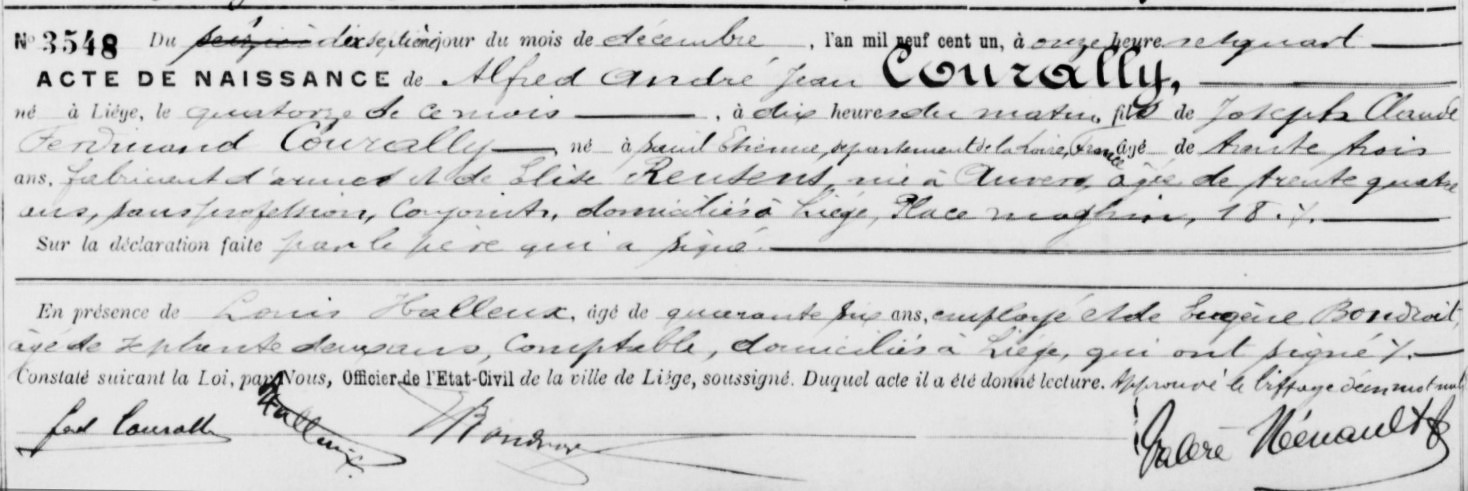 N° 3548 Du seizième dix septième jour du mois de décembre, l'an mil neuf cent un, à onze heures et quart
ACTE DE NAISSANCE de Alfred André Jean Courally,
né à Liége, le quatorze de ce mois, à dix heures du matin, fils de Joseph Claude
Ferdinand Courally, né à Saint Etienne, département de la Loire, France, âgé de trente trois
ans, fabricant d'armes et de Elise Reusens, née à Anvers, âgée de trente quatre
ans, sans profession, conjoints, domiciliés à Liége, Place Maghin, 18.
Sur la déclaration faite par le père qui a signé.
En présence de Louis Halleux, âgé de quarante six ans, employé et de Eugène Bondroit,
âgé de septante deux ans, comptable, domiciliés à Liége, qui ont signé.
Constaté suivant la Loi, par Nous, Officier de l'Etat-Civil de la ville de Liége, soussigné. Duquel acte il a été donné lecture. Approuvé le biffage d'un mot nul
ferd Courally Halleux Bondroit Valère Hénault